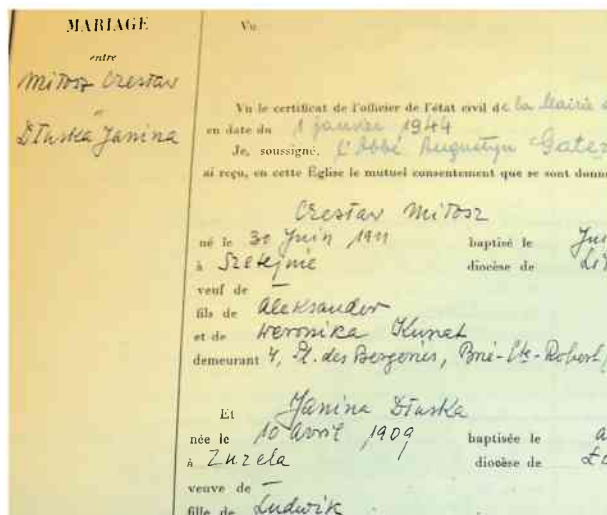 MARIAGE
entre
Miłosz Czesław
et
Dłuska Janina
Vu
Vu le certificat de l'officier de l'état civil de la Mairie
en date du 1 janvier 1944
Je, soussigné, l'Abbé Augustyn
ai reçu, en cette Église le mutuel consentement que se sont
Czesław Miłosz
né le 30 Juin 1911 baptisé le
à Szetejnie diocèse de
veuf de —
fils de Aleksander
et de Weronika Kunat
demeurant 4, Pl. des Bergeries, Brie-Cte-Robert,
Et Janina Dłuska
née le 10 avril 1909 baptisée le
à Zuzela diocèse de
veuve de —
fille de Ludwik